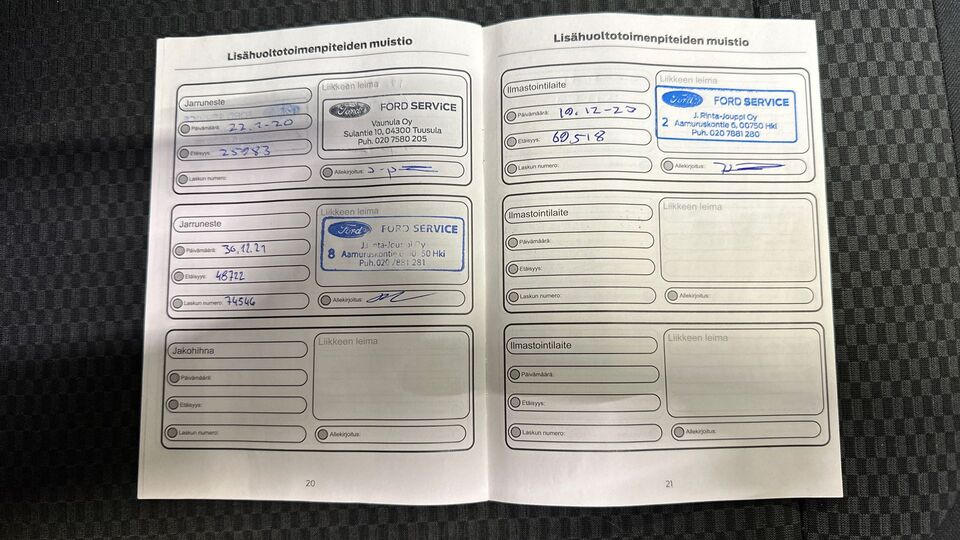 Lisähuoltotoimenpiteiden muistio
Jarruneste
Päivämäärä: 22.1-20
Etäisyys: 25983
Laskun numero:
Liikkeen leima
Ford FORD SERVICE
Vaunula Oy
Sulantie 10, 04300 Tuusula
Puh. 020 7580 205
Allekirjoitus:
Jarruneste
Päivämäärä: 30.12.21
Etäisyys: 48722
Laskun numero: 74546
Liikkeen leima
Ford FORD SERVICE
J. Rinta-Jouppi Oy
8 Aamuruskontie 6, 00750 Hki
Puh. 020 7881 281
Allekirjoitus:
Jakohihna
Päivämäärä:
Etäisyys:
Laskun numero:
Liikkeen leima
Allekirjoitus:
20
Lisähuoltotoimenpiteiden muistio
Ilmastointilaite
Päivämäärä: 19.12-20
Etäisyys: 69518
Laskun numero:
Liikkeen leima
Ford FORD SERVICE
J. Rinta-Jouppi Oy
2 Aamuruskontie 6, 00750 Hki
Puh. 020 7881 280
Allekirjoitus:
Ilmastointilaite
Päivämäärä:
Etäisyys:
Laskun numero:
Liikkeen leima
Allekirjoitus:
Ilmastointilaite
Päivämäärä:
Etäisyys:
Laskun numero:
Liikkeen leima
Allekirjoitus:
21